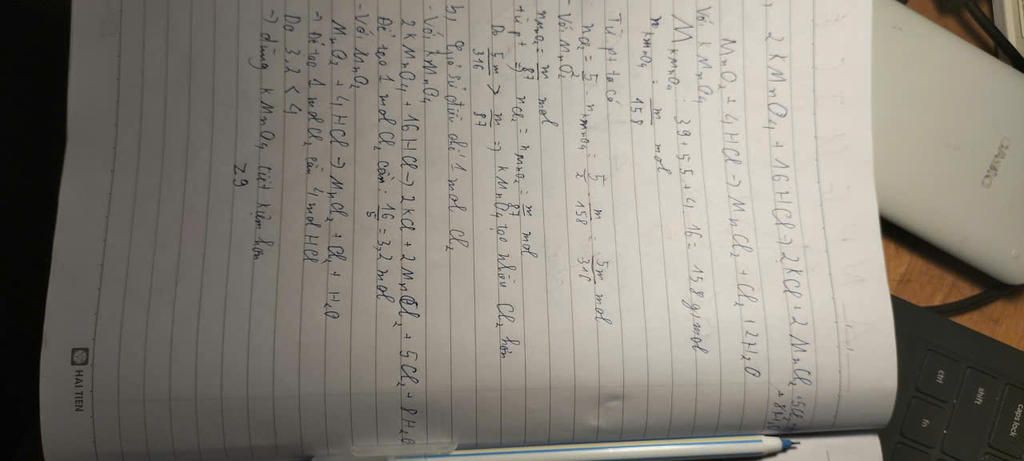 2KMnO₄ + 16HCl → 2KCl + 2MnCl₂ + 5Cl₂ + 8H₂O
MnO₂ + 4HCl → MnCl₂ + Cl₂ + 2H₂O
Với KMnO₄
M KMnO₄ : 39 + 55 + 4.16 = 158 g/mol
n KMnO₄ = m/158 mol
Từ pt ta có
nCl₂ = 5/2 nKMnO₄ = 5/2 . m/158 = 5m/316 mol
- Với MnO₂
nMnO₂ = m/87 mol
từ pt → nCl₂ = nMnO₂ = m/87 mol
Do 5m/316 > m/87 → KMnO₄ tạo nhiều Cl₂ hơn
b, Giả sử điều chế 1 mol Cl₂
- Với KMnO₄
2KMnO₄ + 16HCl → 2KCl + 2MnCl₂ + 5Cl₂ + 8H₂O
Để tạo 1 mol Cl₂ cần: 16/5 = 3,2 mol
- Với MnO₂
MnO₂ + 4HCl → MnCl₂ + Cl₂ + H₂O
→ Để tạo 1 mol Cl₂ cần 4 mol HCl
Do 3,2 < 4
→ dùng KMnO₄ tiết kiệm hơn
29
HAI TIEN
ctrl
fn
shift
caps lock